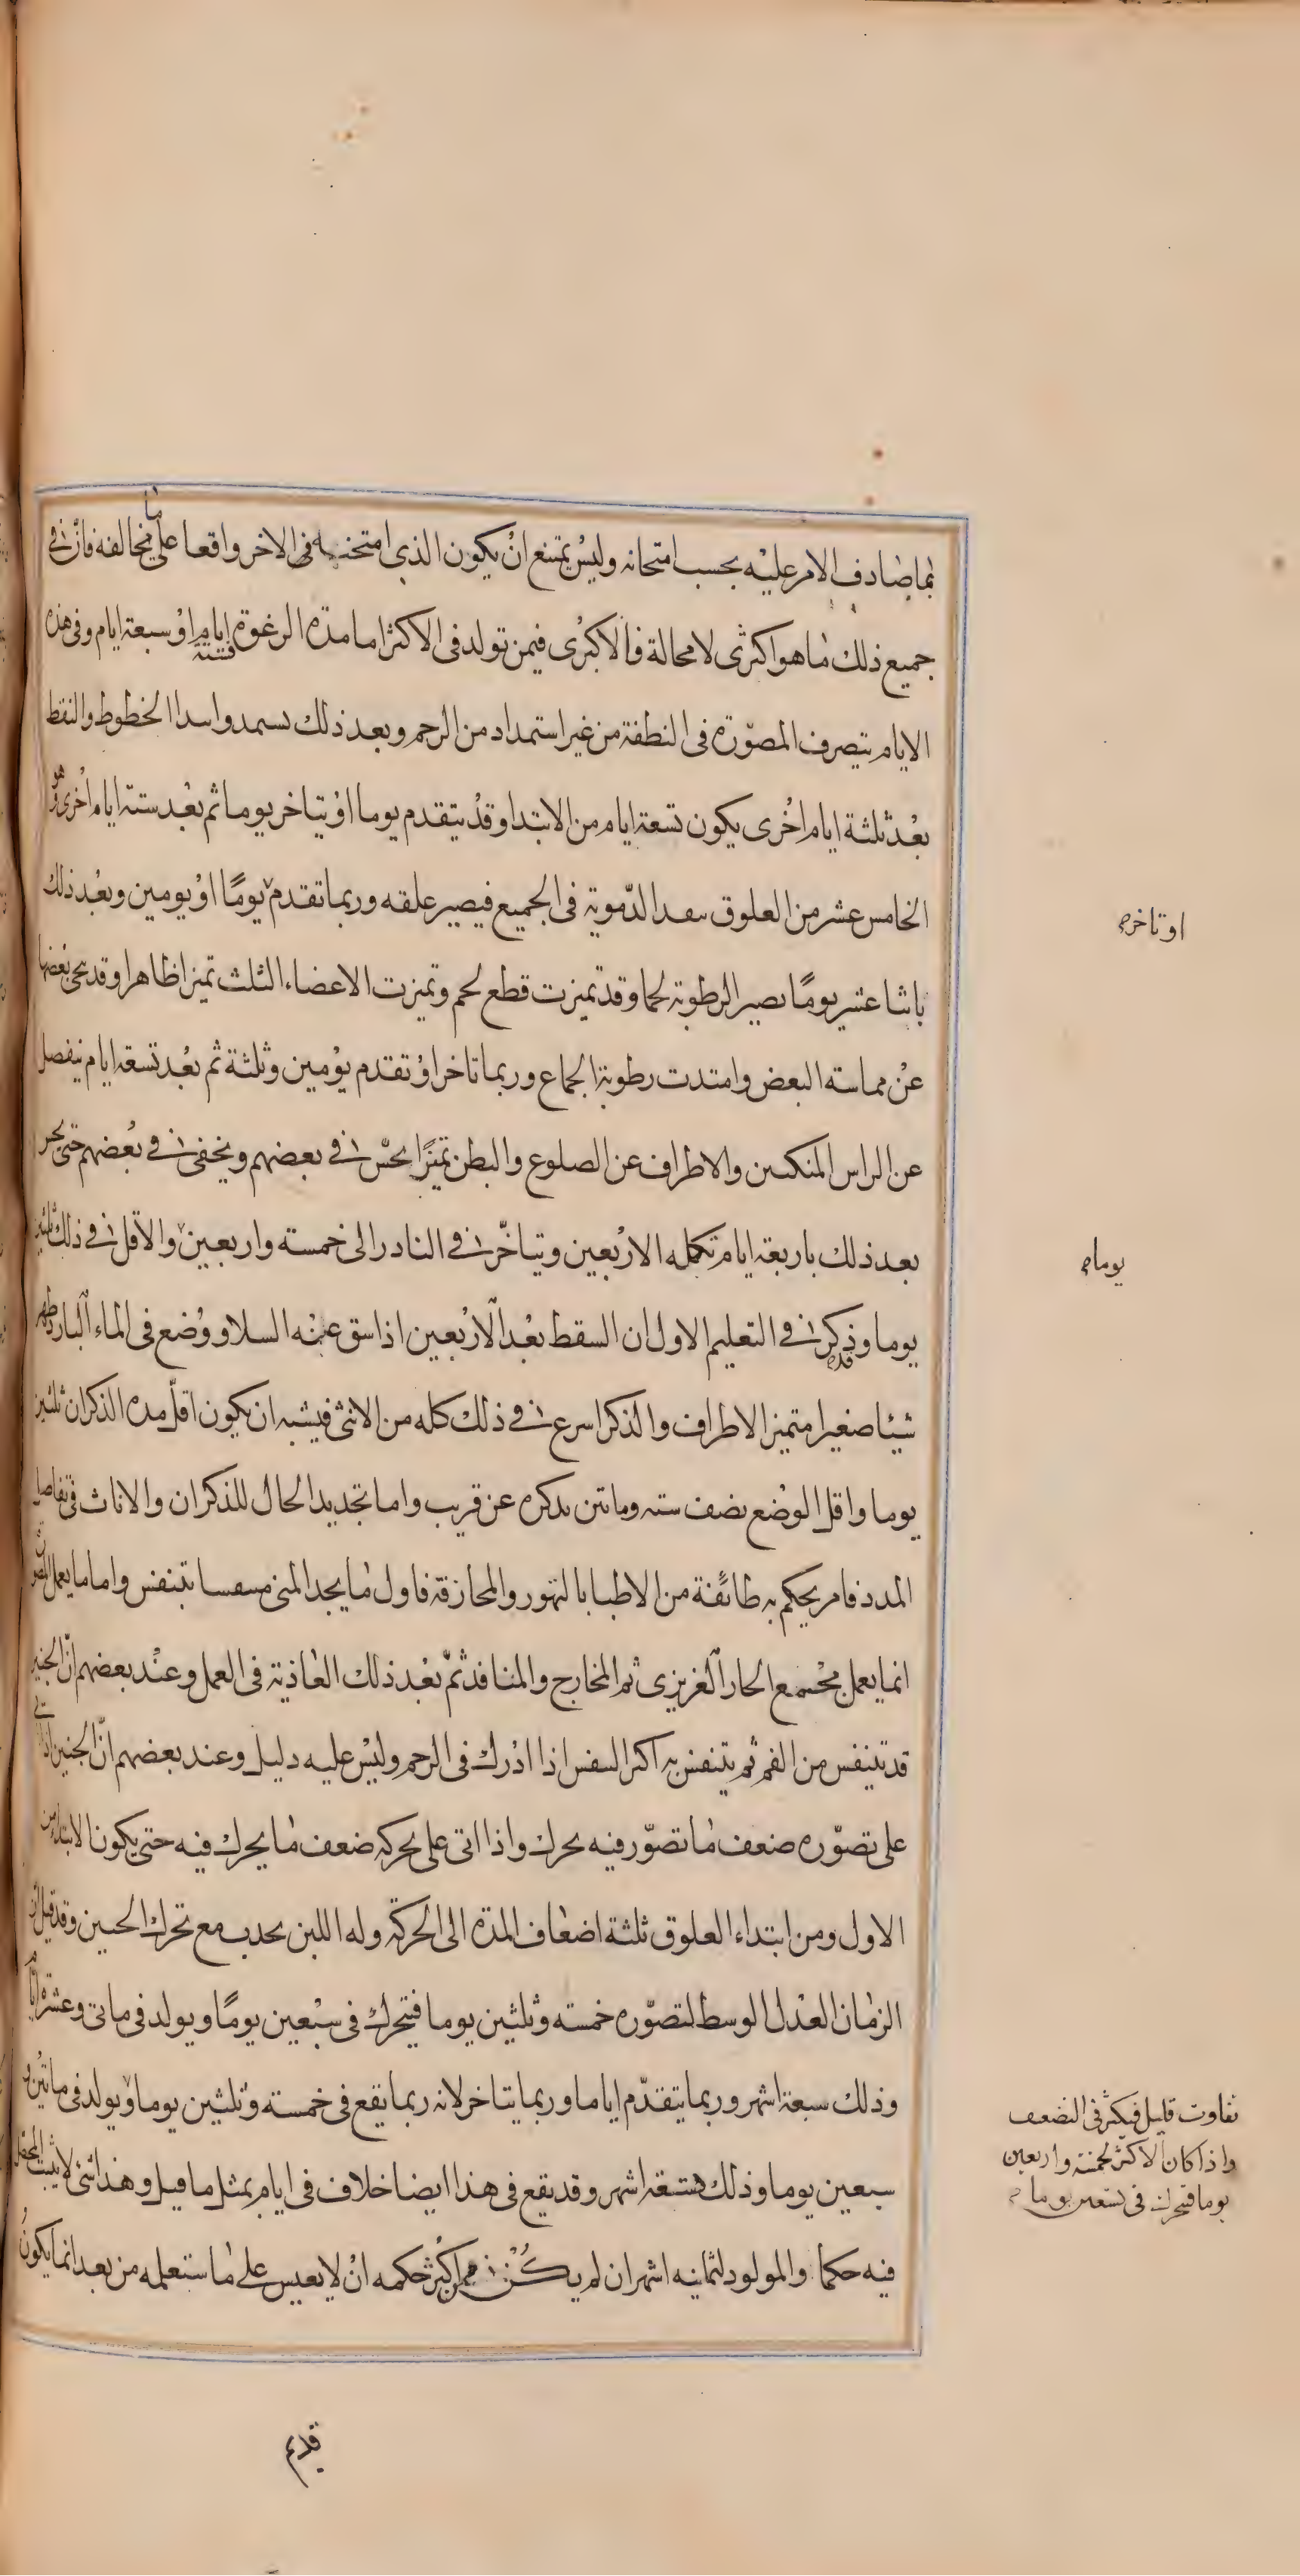 بما صادف الامر عليه بحسب امتحانه وليس يمتنع ان يكون الذى امتحنه فى الاخر واقعا على ما يخالفه فان فى
جميع ذلك ما هو اكثرى لا محالة فالاكثرى فيمن تولد فى الاكثر اما مدة الرغوة فستة ايام او سبعة ايام وفى هذه
الايام يتصرف المصوّرة فى النطفة من غير استمداد من الرحم وبعد ذلك يستمد وابتداء الخطوط والنقط
بعد ثلثة ايام اخرى يكون تسعة ايام من الابتدا وقد يتقدم يوما او يتاخر يوما ثم بعد ستة ايام اخرى هو
الخامس عشر من العلوق سفد الدّمويّة فى الجميع فيصير علقه وربما تقدم يومًا او يومين وبعد ذلك
باثنا عشر يومًا يصير الرطوبة لحما وقد تميزت قطع لحم وتميزت الاعضاء الثلث تميزا ظاهرا وقد تنحى بعضها
عن مماسته البعض وامتدت رطوبة الجماع وربما تاخر او تقدم يومين وثلثة ثم بعد تسعة ايام ينفصل
عن الراس المنكبين والاطراف عن الضلوع والبطن تميزًا يحسّ فى بعضهم ويخفى فى بعضهم حتى يحس
بعد ذلك باربعة ايام تكمله الاربعين ويتاخّر فى النادر الى خمسته واربعين والاقل فى ذلك ثلثين
يوما وقد ذكر فى التعليم الاول ان السقط بعد الاربعين اذا سق عنه السلا ووضع فى الماء البارد ظهر
شيئا صغيرا متميز الاطراف والذكر اسرع فى ذلك كله من الانثى فيشبه ان يكون اقلّ مده الذكران ثلثين
يوما واقل الوضع نصف سنه وماتين نذكره عن قريب واما تحديد الحال للذكران والاناث فى تفاصيل
المدد فامر يحكم به طائفة من الاطبا بالتهور والمجازفة فاول ما يجد المنى متنفسا يتنفس واما ما يعمل المصورة
انما يعمل مجتمع الحار الغريزى ثم المخارج والمنافذ ثمّ بعد ذلك الغاذية فى العمل وعند بعضهم انّ الجنين
قد يتنفس من الفم ثم يتنفس به اكثر التنفس اذا ادرك فى الرحم وليس عليه دليل وعند بعضهم انّ الجنين اذا اتى
على تصوّره ضعف ما تصوّر فيه تحرك واذا اتى على تحركه ضعف ما يحرك فيه حتى يكون الابتداء من
الاول ومن ابتداء العلوق ثلثة اضعاف المدة الى الحركة وله اللبن يحدث مع تحرك الجنين وقد قيل ان
الزمان العدل الوسط لتصوّره خمسته وثلثين يوما فيتحرك فى سبعين يومًا ويولد فى مايتى وعشرة ايام
وذلك سبعة اشهر وربما يتقدّم اياما وربما يتاخر لانه ربما يقع فى خمسته وثلثين يوما ويولد فى مائتين و
سبعين يوما وذلك تسعة اشهر وقد يقع فى هذا ايضا خلاف فى ايام بمثل ما قيل وهذا شئ لا يثبت المحصل
فيه حكما والمولود لثمانيه اشهر ان لم يكن ممن اكثر حكمه ان لا يعيش على ما ستعلمه من بعد انما يكون
او تاخر صح
يوما صح
تفاوت قليل فيكثر فى التضعيف
واذا كان الاكثر لخمسة واربعين
يوما فتحرك فى تسعين يوما صح